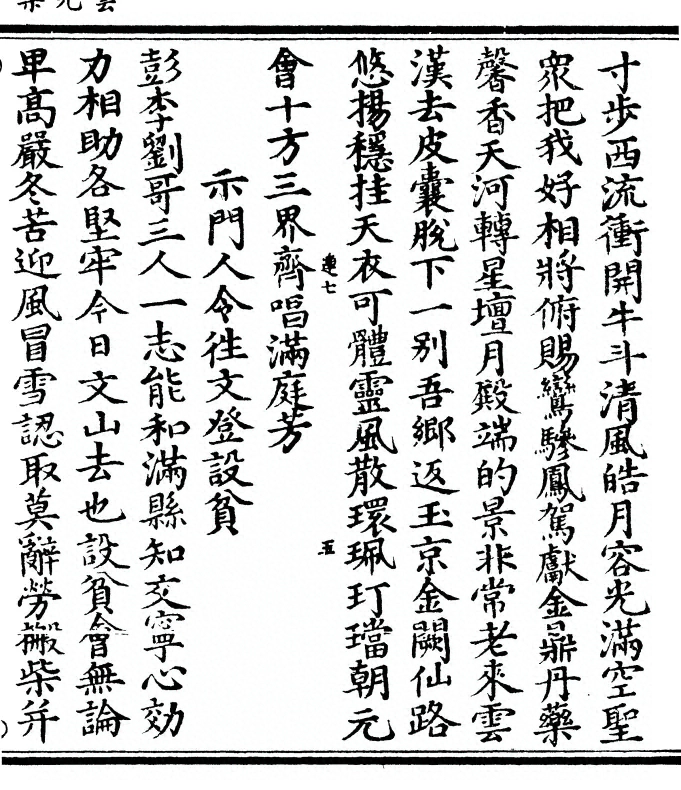 寸步西流衝開牛斗清風皓月容光滿空聖
眾把我好相將俯賜鸞驂鳳駕獻金鼎丹藥
馨香天河轉星壇月殿端的景非常老來雲
漢去皮囊脫下一别吾鄉返玉京金闕仙路
悠揚穩挂天衣可體靈風散環珮玎璫朝元
會十方三界齊唱滿庭芳
示門人令往文登設貧
彭李劉哥三人一志能和滿縣知交寧心効
力相助各堅牢今日文山去也設貧會無論
卑高嚴冬苦迎風冒雪認取莫辭勞搬柴并
七
五